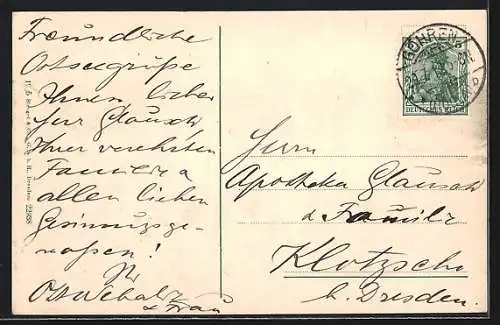 Freundliche
Ostseegrüße
Ihnen lieber
Herr Glausch
Ihrer verehrten
Familie u
allen lieben
Gesinnungsge-
nossen!
Ihr
u Frau
GÖHREN
DEUTSCHES REICH
Herrn
Apotheke Glausch
u Familie
Klotzsche
b. Dresden.